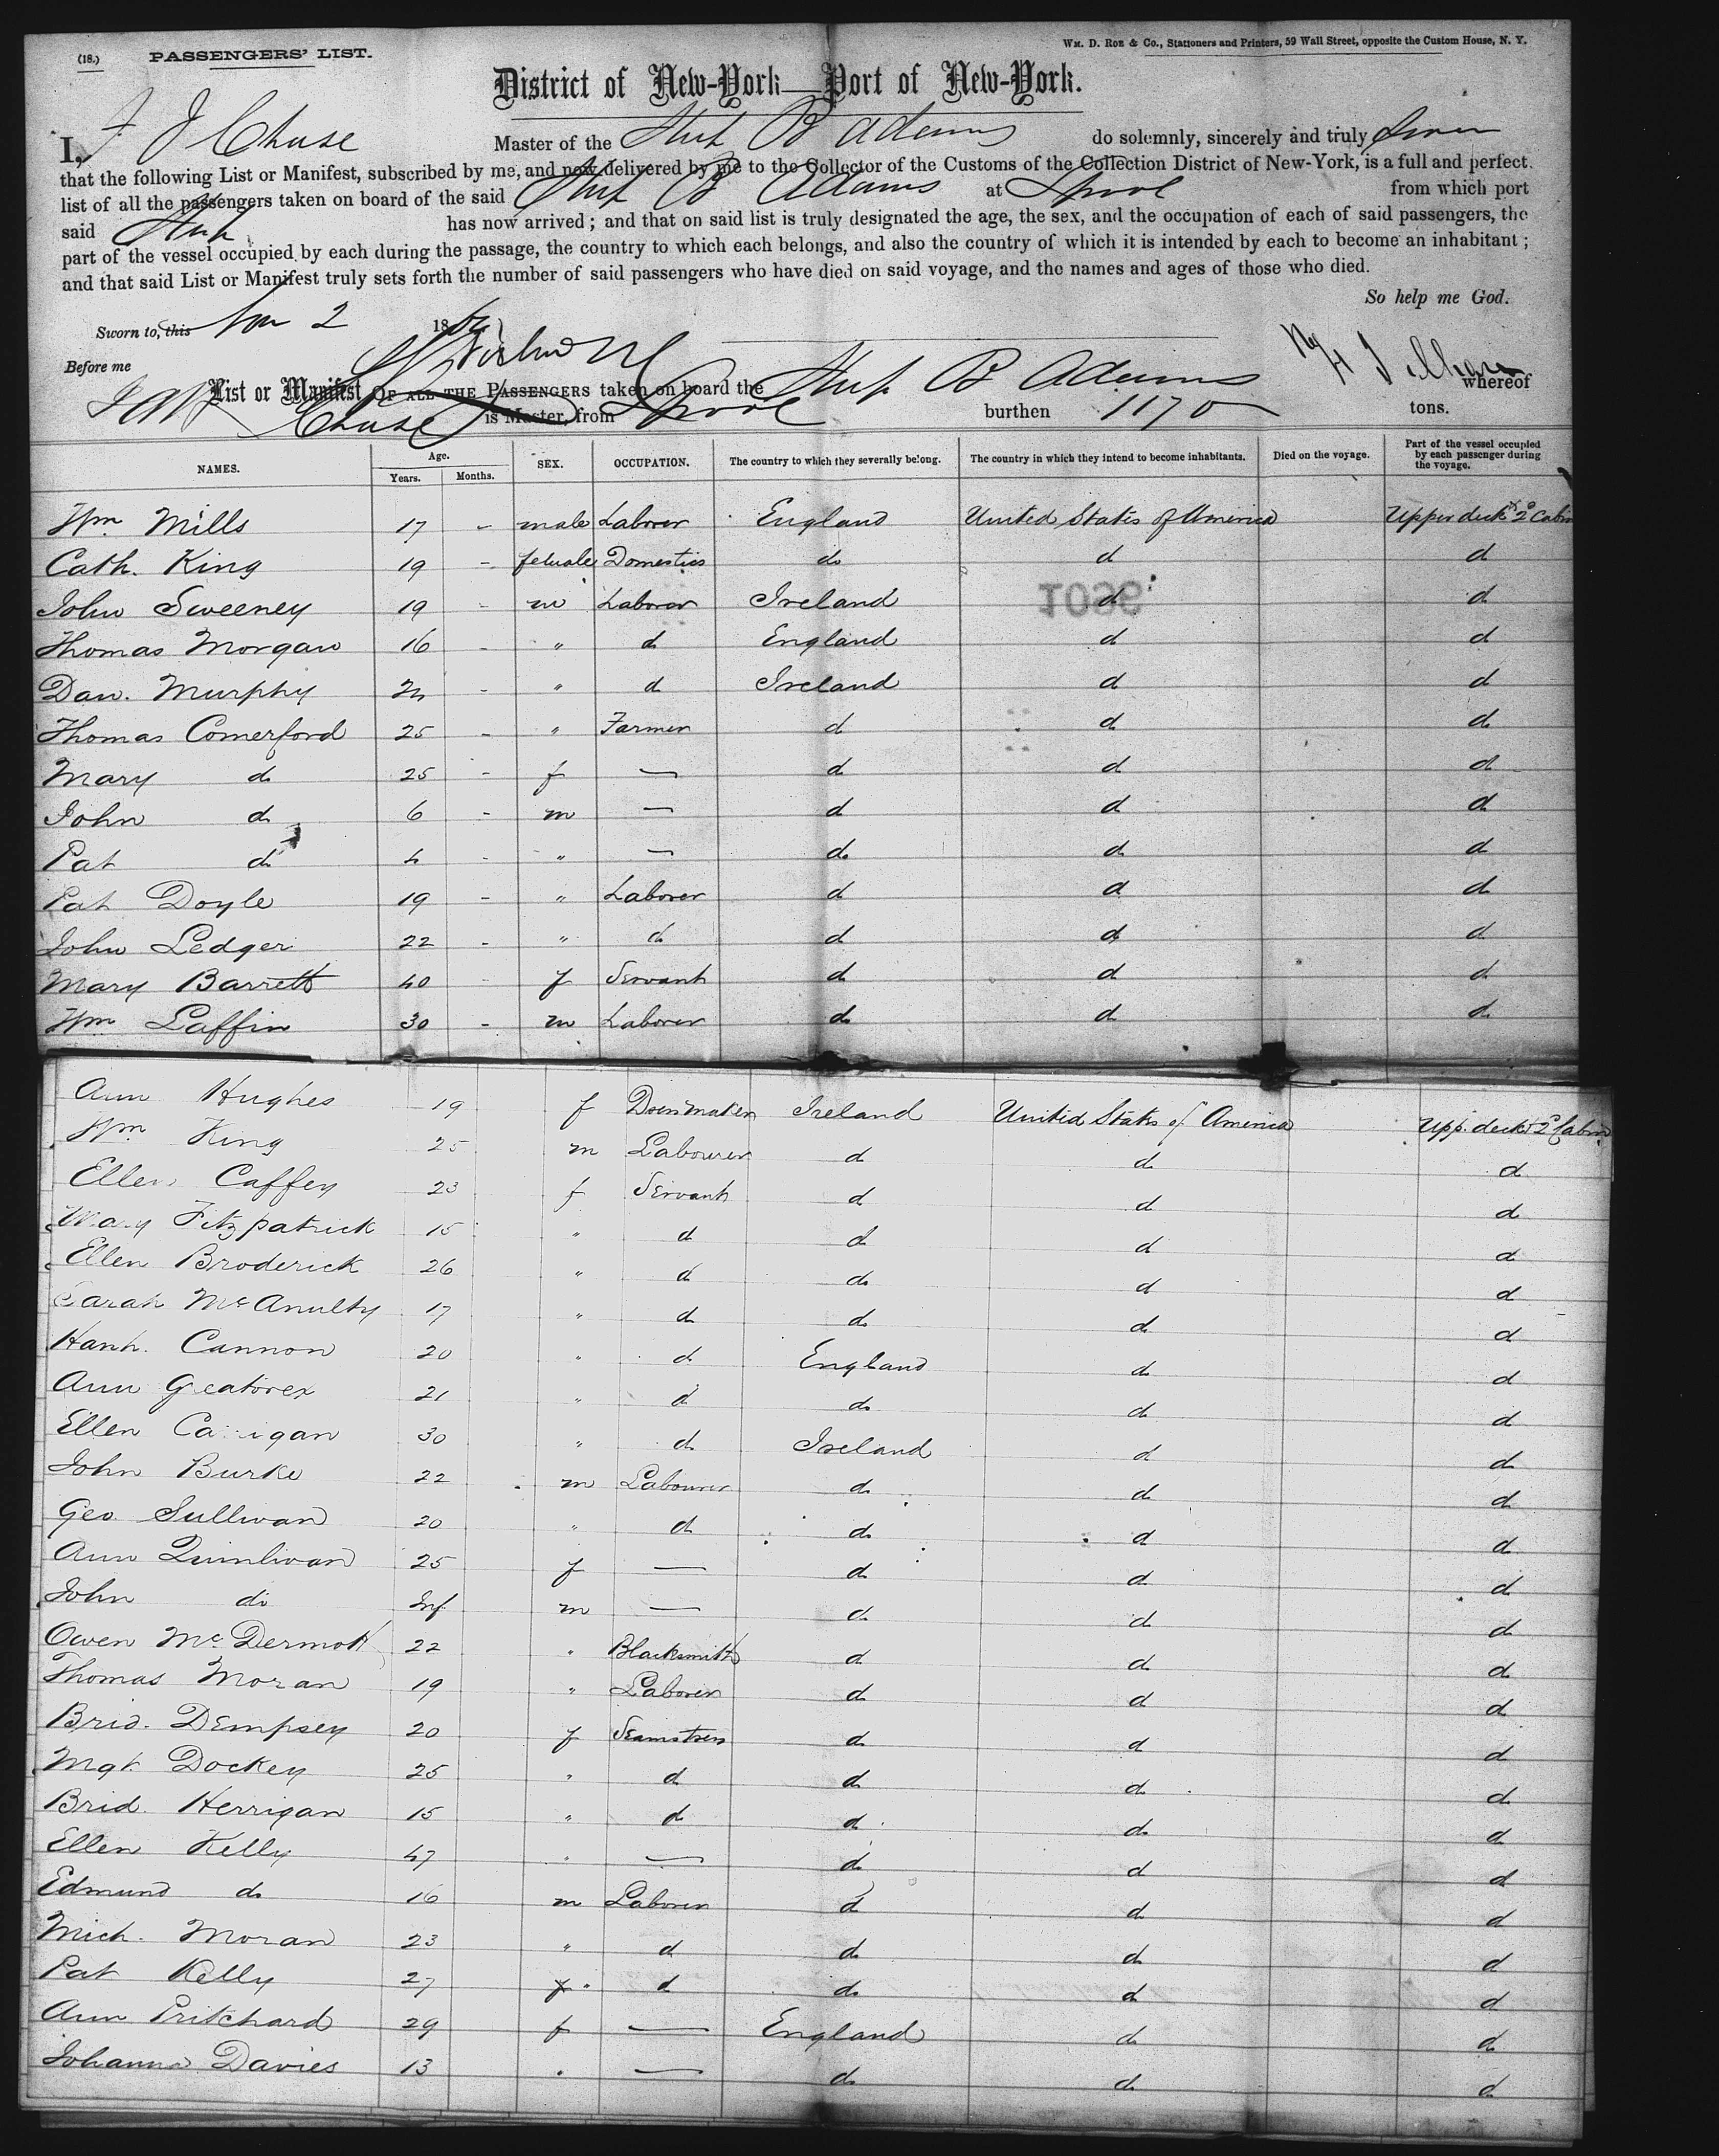 (18.) PASSENGERS' LIST. WM. D. ROE & CO., Stationers and Printers, 59 Wall Street, opposite the Custom House, N. Y.
District of New-York—Port of New-York.
I, J Chase Master of the Ship B Adams do solemnly, sincerely and truly Swear
that the following List or Manifest, subscribed by me, and now delivered by me to the Collector of the Customs of the Collection District of New-York, is a full and perfect
list of all the passengers taken on board of the said Ship B Adams at Lpool from which port
said Ship has now arrived; and that on said list is truly designated the age, the sex, and the occupation of each of said passengers, the
part of the vessel occupied by each during the passage, the country to which each belongs, and also the country of which it is intended by each to become an inhabitant;
and that said List or Manifest truly sets forth the number of said passengers who have died on said voyage, and the names and ages of those who died.
So help me God.
Sworn to, this Nov 2 18
Before me
List or Manifest OF ALL THE PASSENGERS taken on board the Ship B Adams whereof
Chase is Master, from Lpool burthen 1170 tons.
NAMES. Age. Years. Months. SEX. OCCUPATION. The country to which they severally belong. The country in which they intend to become inhabitants. Died on the voyage. Part of the vessel occupied by each passenger during the voyage.
Wm. Mills 17 - male Laborer England United States of America Upper deck & 2d Cabin
Cath. King 19 - female Domestics do d d
John Sweeney 19 - m Laborer Ireland d d
1096
Thomas Morgan 16 - " d England d d
Dan. Murphy - " d Ireland d d
Thomas Comerford 25 - " Farmer d d d
Mary do 25 - f — d d d
John do 6 - m — d d d
Pat do 4 - " — do d d
Pat Doyle 19 - " Laborer d d d
John Ledger 22 - " d d d d
Mary Barrett 40 - f Servant d d d
Wm Laffin 30 - m Laborer do d d
Ann Hughes 19 f Dressmaker Ireland United States of America Upp. deck & 2d Cabin
Wm King 25 m Labourer d d d
Ellen Caffey 23 f Servant d d d
Mary Fitzpatrick 15 " d d d d
Ellen Broderick 26 " d do d d
Sarah McAnulty 17 " d do d d
Hanh. Cannon 20 " d England d d
Ann Greatorex 21 " d do d d
Ellen 30 " d Ireland d d
John Burke 22 m Labourer d d d
Geo Sullivan 20 " d do d d
Ann Quinlivan 25 f — d d d
John do Inf m — d d d
Owen McDermott 22 " Blacksmith d d d
Thomas Moran 19 " Laborer d d d
Brid. Dempsey 20 f Seamstress d d d
Mgt Dockey 25 " d d d d
Brid. Herrigan 15 " d d d d
Ellen Kelly 47 " — d d d
Edmund do 16 m Laborer d d d
Mich. Moran 23 " d d d d
Pat Kelly 27 " d do d d
Ann Pritchard 29 f — England d d
Johanna Davies 13 " — do d d